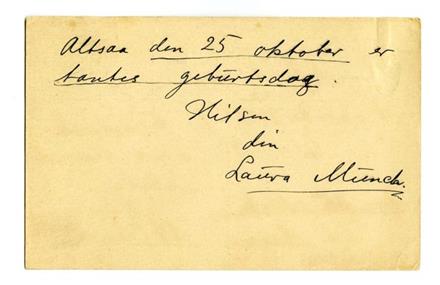 Altsaa den 25 oktober er
tantes geburtsdag.
Hilsen
din
Laura Munch.